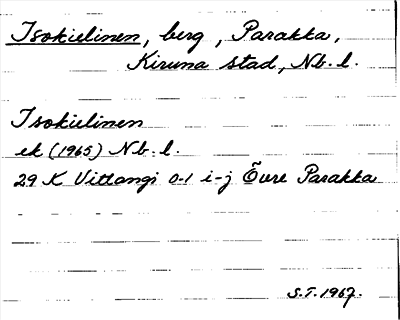 Isokielinen, berg, Parakka,
Kiruna stad, Nb. l.
Isokielinen
ek (1965) Nb. l.
29 K Vittangi 0-1 i-j Övre Parakka
S.T. 1967.